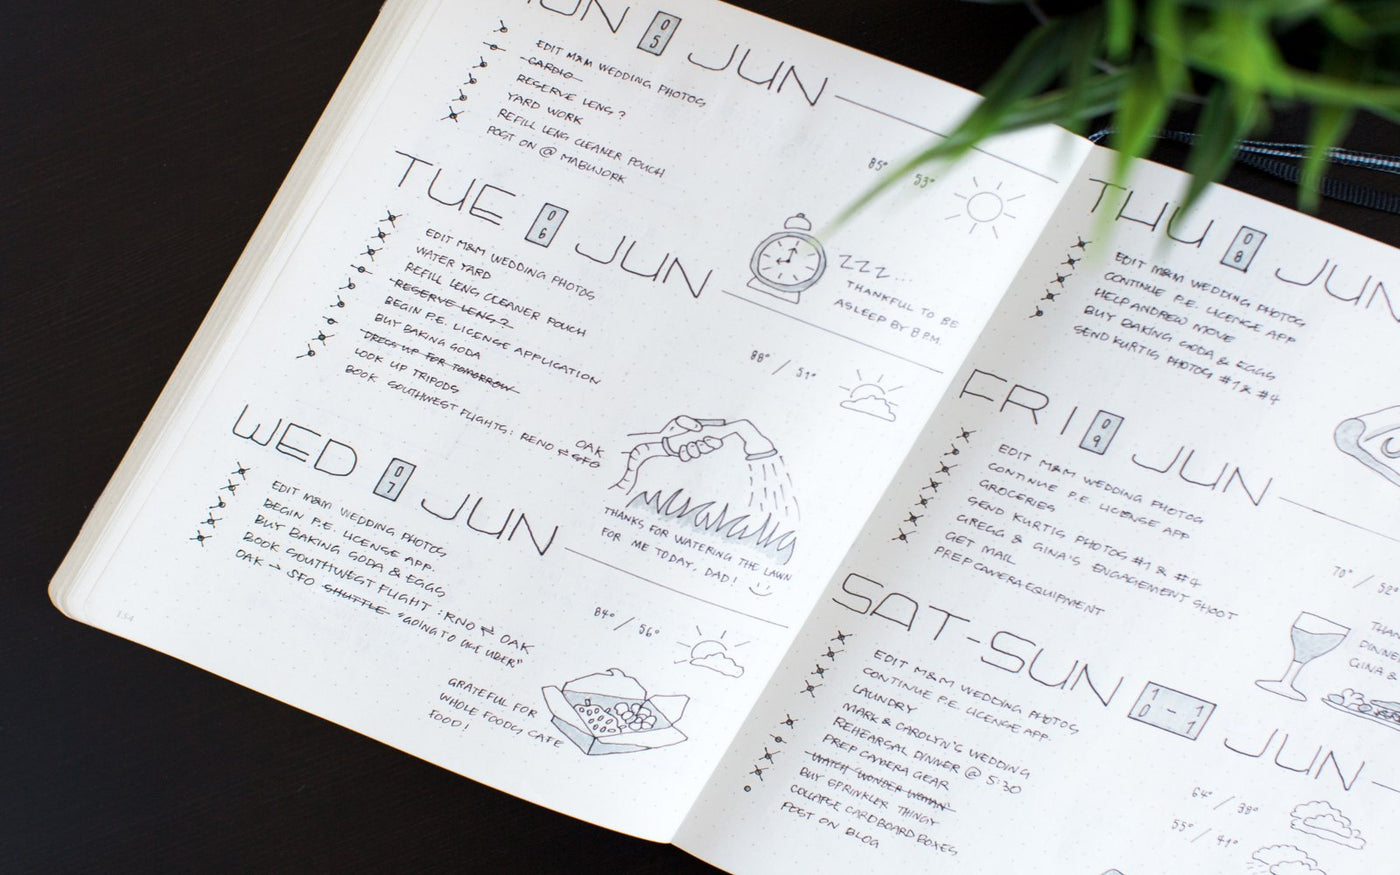 05 JUN
EDIT M&M WEDDING PHOTOS
CARDIO
RESERVE LENS?
YARD WORK
REFILL LENS CLEANER POUCH
POST ON @MABUJORK
85° 53°
ZZZ...
THANKFUL TO BE
ASLEEP BY 8 P.M.
TUE 06 JUN
EDIT M&M WEDDING PHOTOS
WATER YARD
REFILL LENS CLEANER POUCH
RESERVE LENS?
BEGIN P.E. LICENSE APPLICATION
BUY BAKING SODA
DRESS UP FOR TOMORROW
LOOK UP TRIPODS
BOOK SOUTHWEST FLIGHTS: RENO ⇄ SFO
OAK
88° / 51°
THANKS FOR WATERING THE LAWN
FOR ME TODAY, DAD! :)
WED 07 JUN
EDIT M&M WEDDING PHOTOS
BEGIN P.E. LICENSE APP.
BUY BAKING SODA & EGGS
BOOK SOUTHWEST FLIGHT: RNO ⇄ OAK
OAK → SFO SHUTTLE "GOING TO USE UBER"
84° / 56°
GRATEFUL FOR
WHOLE FOODS CAFE
FOOD!
134
THU 08 JUN
EDIT M&M WEDDING PHOTOS
CONTINUE P.E. LICENSE APP
HELP ANDREW MOVE
BUY BAKING SODA & EGGS
SEND KURTIS PHOTOS #1 & #4
FRI 09 JUN
EDIT M&M WEDDING PHOTOS
CONTINUE P.E. LICENSE APP
GROCERIES
SEND KURTIS PHOTOS #1 & #4
GREGG & GINA'S ENGAGEMENT SHOOT
GET MAIL
PREP CAMERA EQUIPMENT
70° / 52°
DINNE
GINA &
SAT-SUN 10-11 JUN
EDIT M&M WEDDING PHOTOS
CONTINUE P.E. LICENSE APP.
LAUNDRY
MARK & CAROLYN'S WEDDING
REHEARSAL DINNER @ 5:30
PREP CAMERA GEAR
WATCH WONDER WOMAN
BUY SPRINKLER THINGY
COLLAPSE CARDBOARD BOXES
POST ON BLOG
64° / 38°
55° / 41°